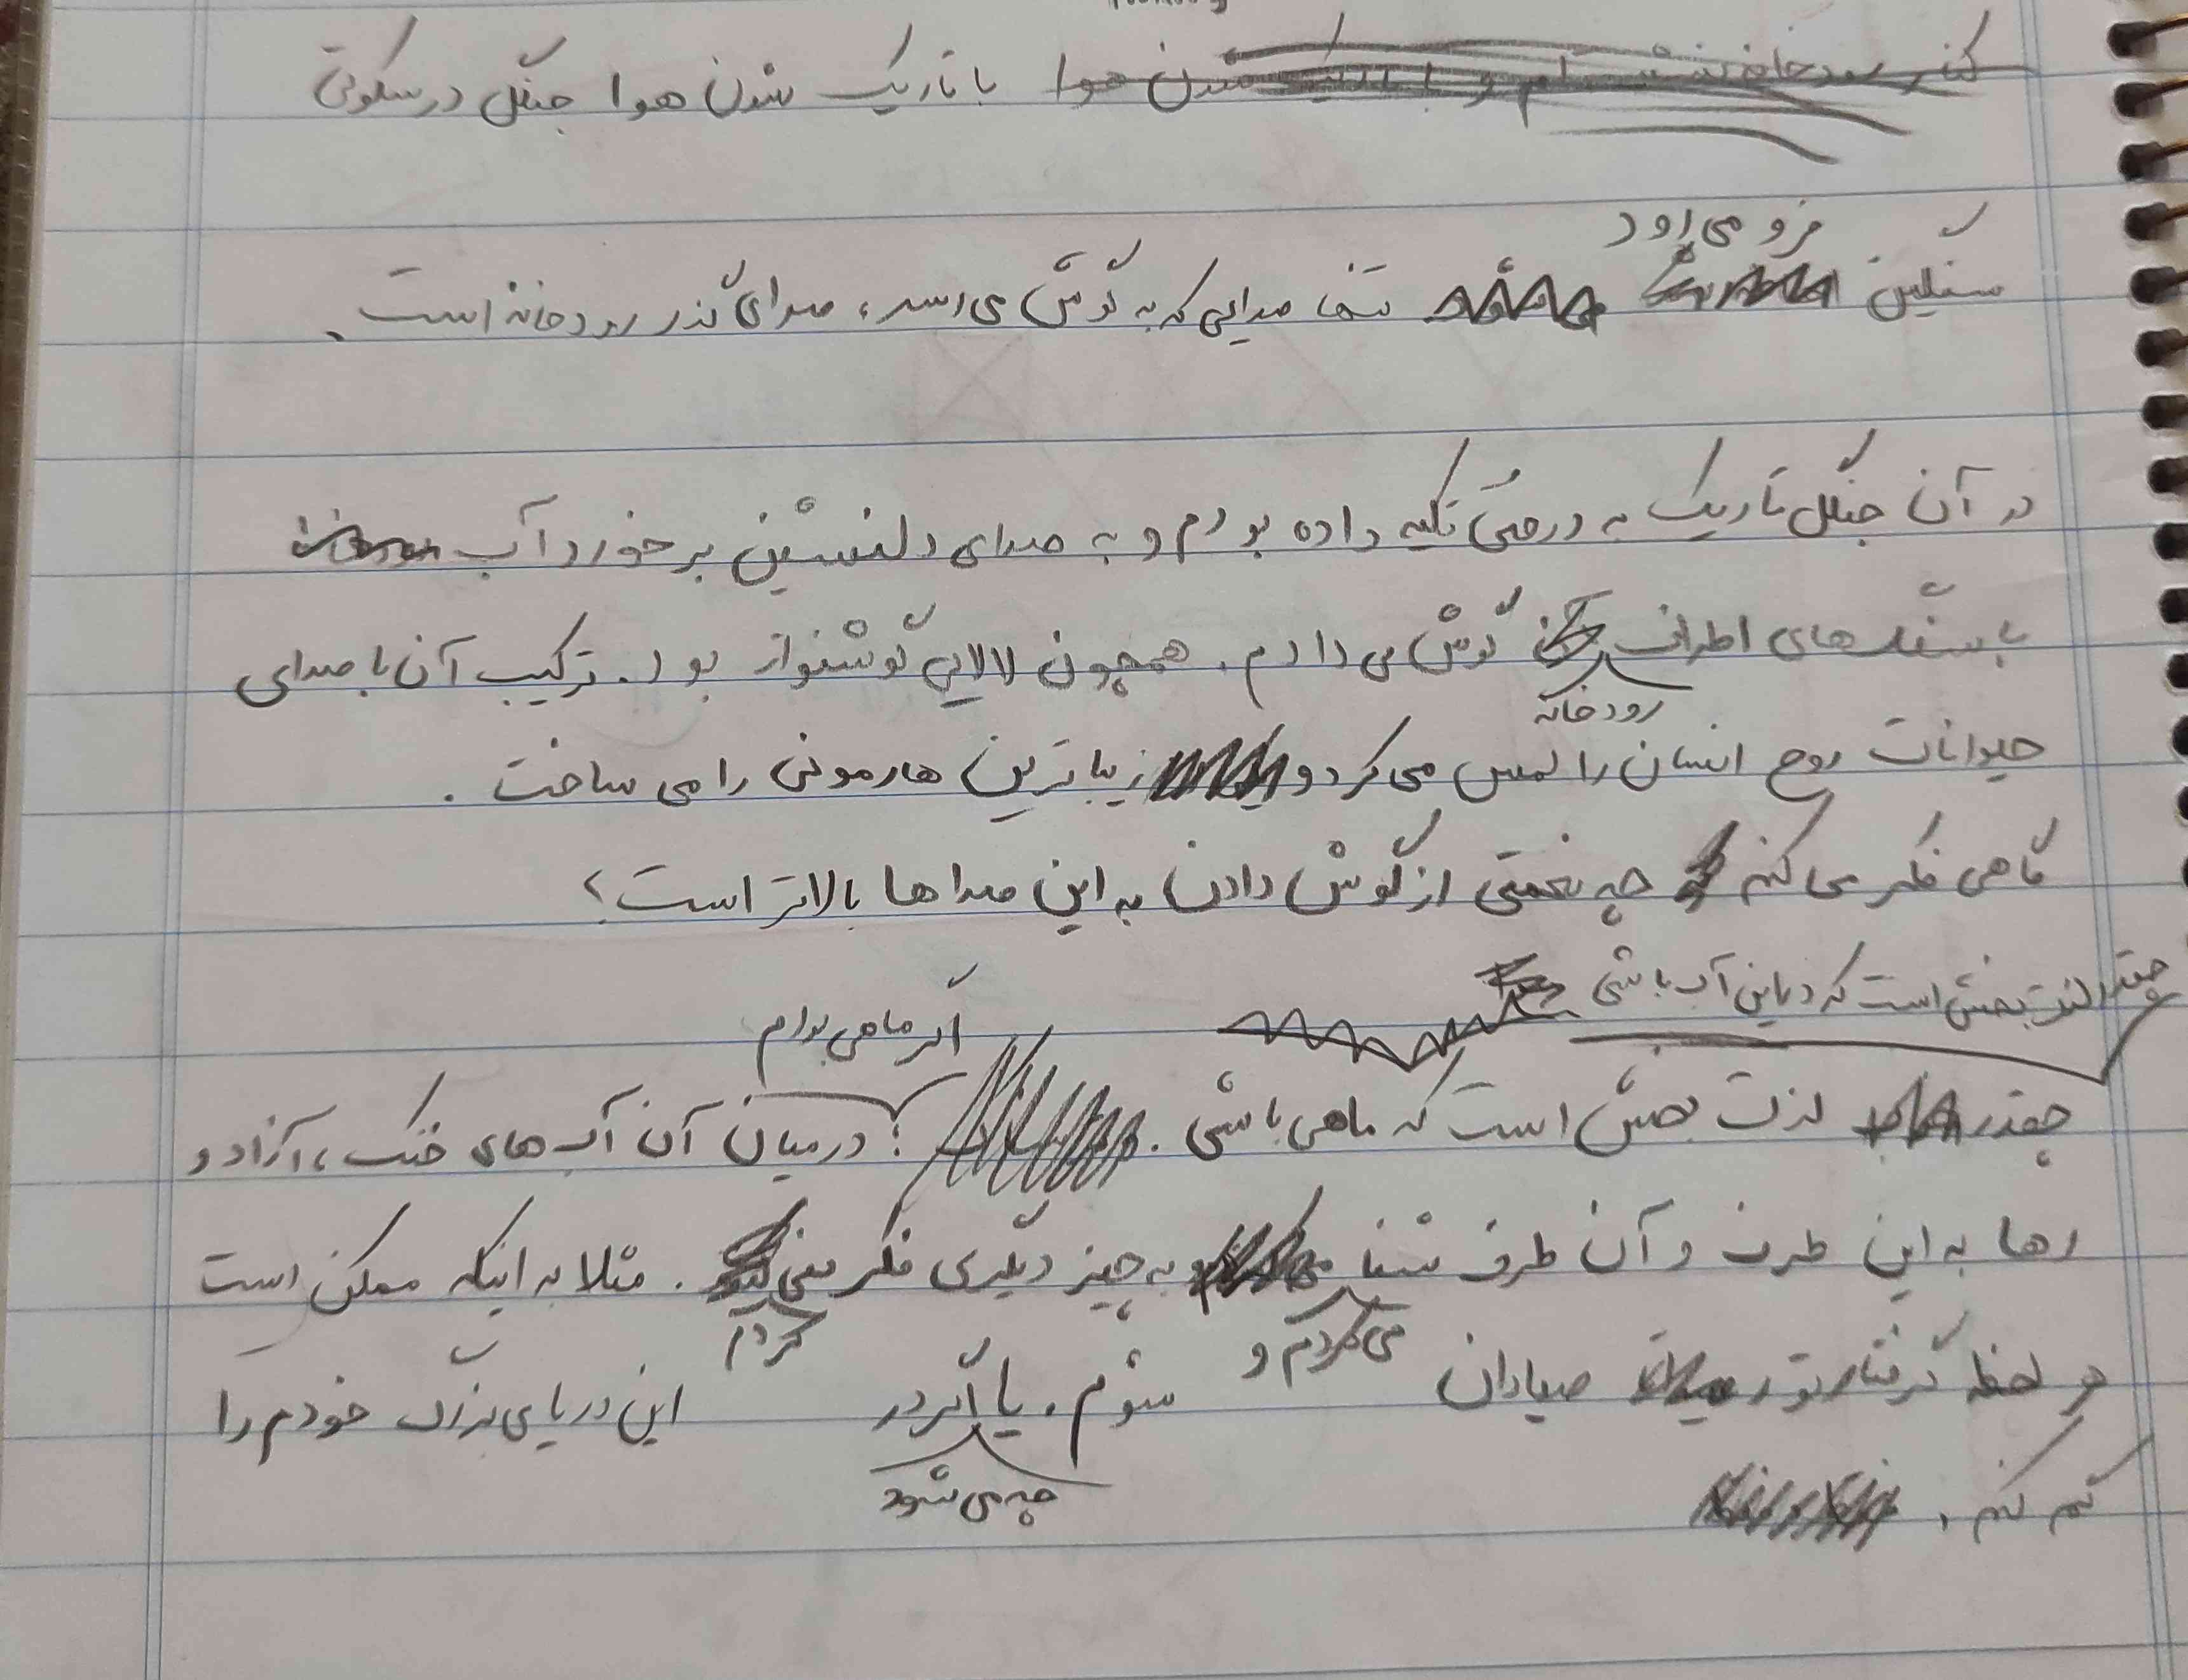 با تاریک شدن هوا جنگل در سکوتی
فرو می‌رود
سنگین تنها صدایی که به گوش می‌رسد، صدای گذر رودخانه است.
در آن جنگل تاریک به درختی تکیه داده بودم و به صدای دلنشین برخورد آب
با سنگ‌های اطراف گوش می‌دادم. همچون لالایی گوشنواز بود. ترکیب آن با صدای
رودخانه
حیوانات روح انسان را لمس می‌کرد و زیباترین هارمونی را می ساخت.
گاهی فکر می‌کنم چه نعمتی از گوش دادن به این صداها بالاتر است؟
چقدر لذت بخش است که در این آب باشی
اگر ماهی بودم
چقدر لذت بخش است که ماهی باشی. در میان آن آب‌های خنک، آزاد و
رها به این طرف و آن طرف شنا به چیز دیگری فکر نمی. مثلا به اینکه ممکن است
می‌کردم و کردم
هر لحظه گرفتار تور صیادان شوم. یا اگر در این دریای بزرگ خودم را
چه می‌شود
گم کنم.